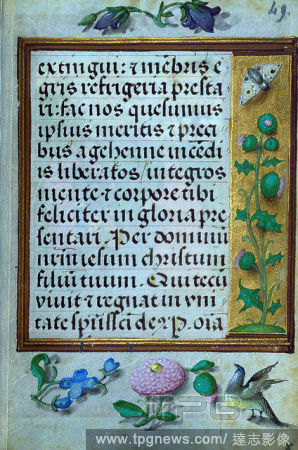 49.
extingui: ⁊ mēbris e
gris refrigeria presta
ri: fac nos quesumus
ipsius meritis ⁊ preci
bus a gehenne incēdi
is liberatos / integros
mente ⁊ corpore tibi
feliciter in gloria pre
sentari. Per dominū
nr̄m iesum christum
filiū tuum. Qui tecū
vivit ⁊ regnat in vni
tate spūssci deus P. oīa
TPG
www.tpgnews.com / 達志影像